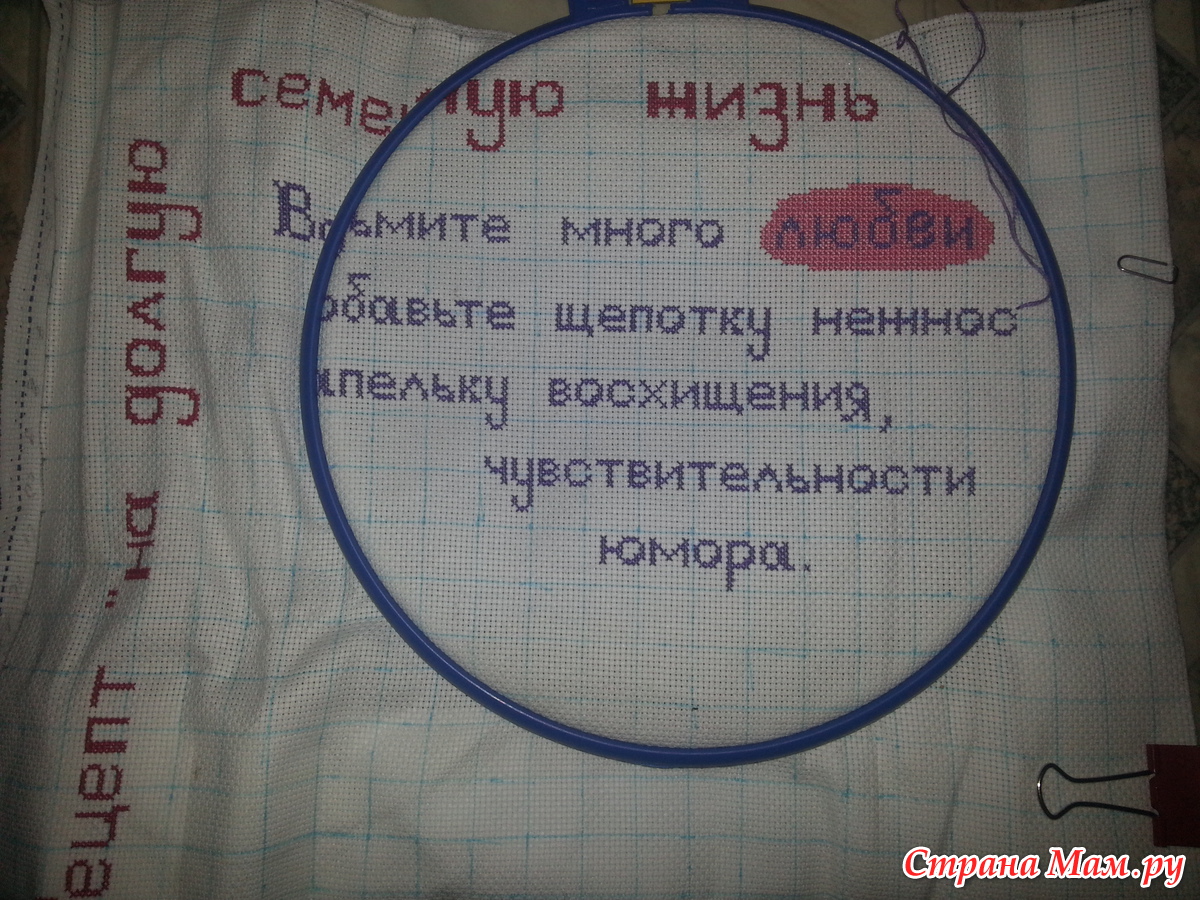 ецепт "на долгую
семейную жизнь
Возьмите много любви
обавьте щепотку нежнос
апельку восхищения,
чувствительности
юмора.
Страна Мам.ру